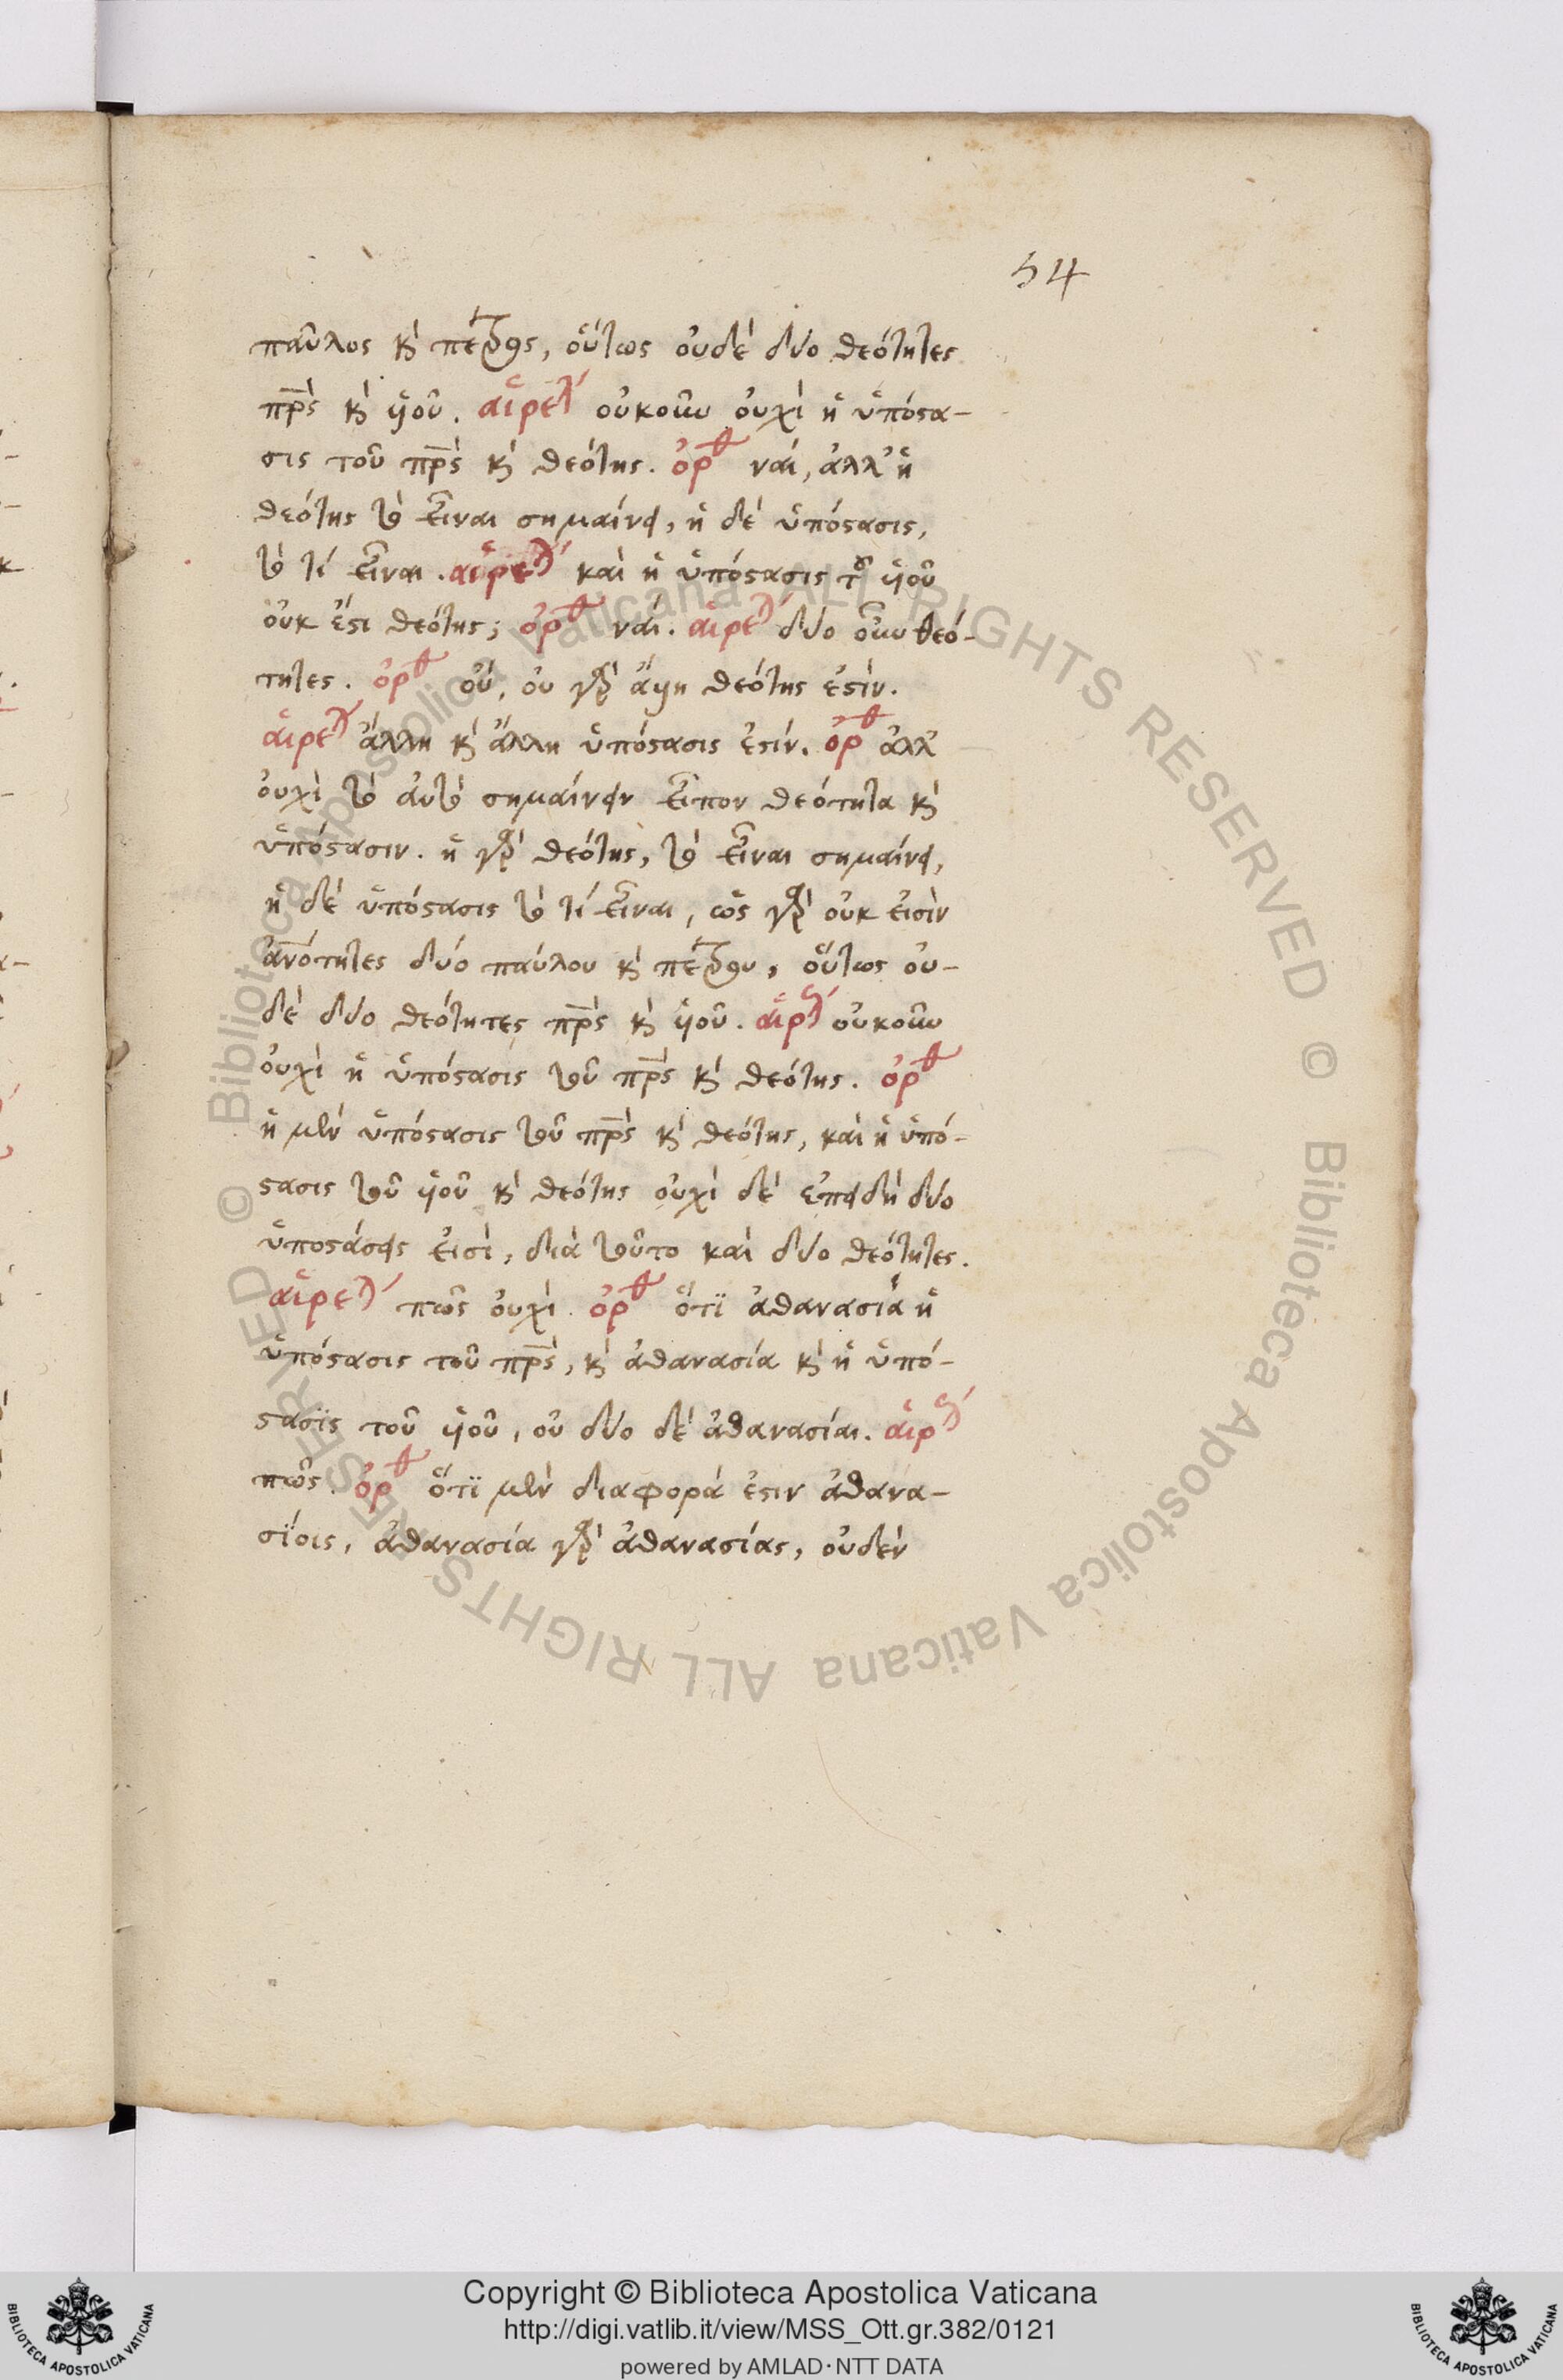 54
παῦλος κ πέτρος, οὕτως οὐδὲ δύο θεότητες
πρς κ υἱοῦ. αἱρετ οὐκοῦν οὐχὶ ἡ ὑπόστα-
σις τοῦ πρς κ θεότης. ὀρθ ναί, ἀλλ' ἡ
θεότης τὸ εἶναι σημαίνει, ἡ δὲ ὑπόστασις,
τὸ τί εἶναι. αἱρετ καὶ ἡ ὑπόστασις τοῦ υἱοῦ
οὐκ ἔστι θεότης; ὀρθ ναί. αἱρετ δύο οὖν θεό-
τητες. ὀρθ οὔ, οὐ γὰρ ἄλλη θεότης ἐστίν.
αἱρετ ἄλλη κ ἄλλη ὑπόστασις ἐστίν. ὀρθ ἀλλ'
οὐχὶ τὸ αὐτὸ σημαίνειν εἶπον θεότητα κ
ὑπόστασιν. ἡ γὰρ θεότης, τὸ εἶναι σημαίνει,
ἡ δὲ ὑπόστασις τὸ τί εἶναι, ὡς γὰρ οὐκ εἰσὶν
ἀνότητες δύο παύλου κ πέτρου, οὕτως οὐ-
δὲ δύο θεότητες πρς κ υἱοῦ. αἱρετ οὐκοῦν
οὐχὶ ἡ ὑπόστασις τοῦ πρς κ θεότης. ὀρθ
ἡ μὲν ὑπόστασις τοῦ πρς κ θεότης, καὶ ἡ ὑπό-
στασις τοῦ υἱοῦ κ θεότης οὐχὶ δὲ ἐπειδὴ δύο
ὑποστάσεις εἰσὶ, διὰ τοῦτο καὶ δύο θεότητες.
αἱρετ πῶς οὐχὶ. ὀρθ ὅτϊ ἀθανασία ἡ
ὑπόστασις τοῦ πρς, κ ἀθανασία κ ἡ ὑπό-
στασϊς τοῦ υἱοῦ, οὐ δύο δὲ ἀθανασίαι. αἱρετ
πῶς. ὀρθ ὅτϊ μὲν διαφορά ἐστιν ἀθανα-
σϊοις, ἀθανασία γὰρ ἀθανασίας, οὐδὲν
© Biblioteca Apostolica Vaticana ALL RIGHTS RESERVED © Biblioteca Apostolica Vaticana ALL RIGHTS RESERVED
Copyright © Biblioteca Apostolica Vaticana
http://digi.vatlib.it/view/MSS_Ott.gr.382/0121
powered by AMLAD·NTT DATA
BIBLIOTECA APOSTOLICA VATICANA
BIBLIOTECA APOSTOLICA VATICANA